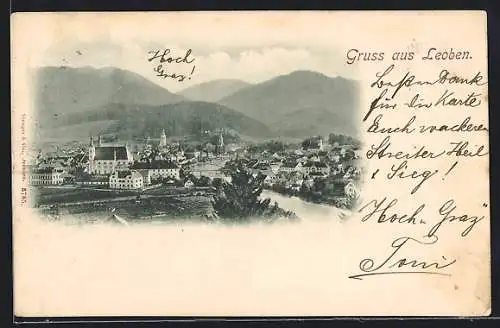 Hoch
Graz!
Gruss aus Leoben.
Besten Dank
für die Karte
Euch wackeren
Streiter Heil
& Sieg!
Hoch "Graz"
Toni
Stengel & Co., Dresden 8785.